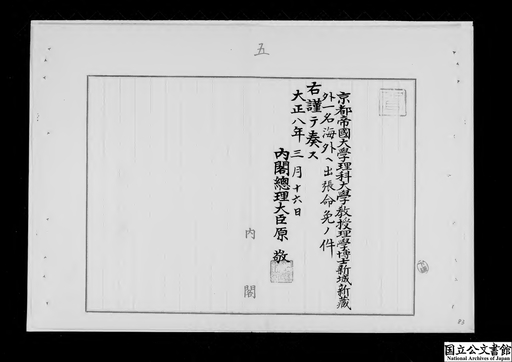 五
京都帝國大學理科大學教授理學博士新城新藏
外一名海外ヘ出張命免ノ件
右謹テ奏ス
大正八年三月十六日
內閣總理大臣原敬
內閣
国立公文書館
National Archives of Japan